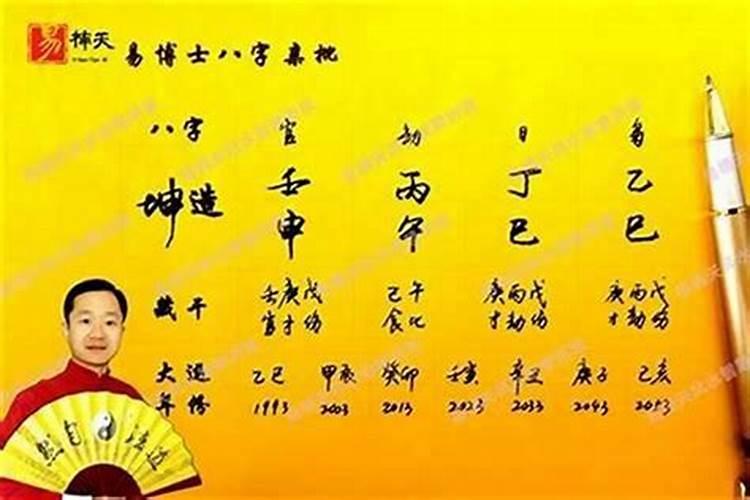 易 梓天
易博士八字集批
八字 官 劫 日 枭
坤造 壬 丙 丁 乙
申 午 巳 巳
藏干 壬庚戊 己午 庚丙戊 庚丙戊
官才伤 食比 才劫伤 才劫伤
大运 乙巳 甲辰 癸卯 壬寅 辛丑 庚子 己亥
年份 1993 2003 2013 2023 2033 2043 2053
然自法道